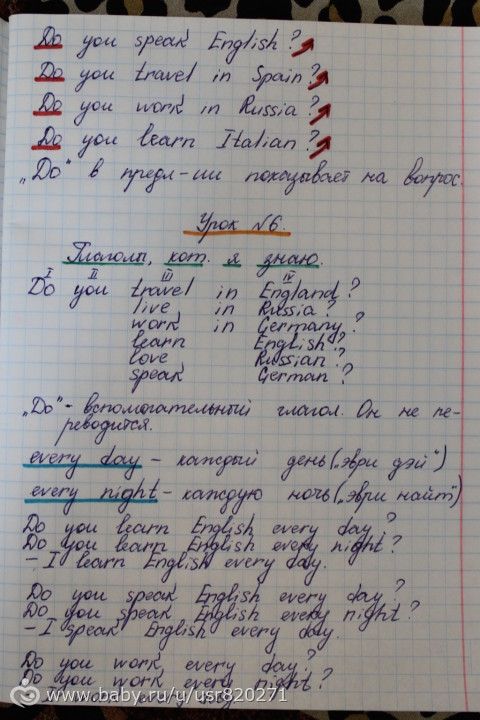 Do you speak English?
Do you travel in Spain?
Do you work in Russia?
Do you learn Italian?
„Do" в предл-ии показывает на вопрос.
Урок №6.
Глаголы, кот. я знаю.
I II III IV
Do you travel in England?
live in Russia?
work in Germany?
learn English?
love Russian?
speak German?
„Do" - вспомогательный глагол. Он не пе-
реводится.
every day - каждый день („эври дэй")
every night - каждую ночь („эври найт")
Do you learn English every day?
Do you learn English every night?
- I learn English every day.
Do you speak English every day?
Do you speak English every night?
- I speak English every day.
Do you work every day?
Do you work every night?
www.baby.ru/u/usr820271